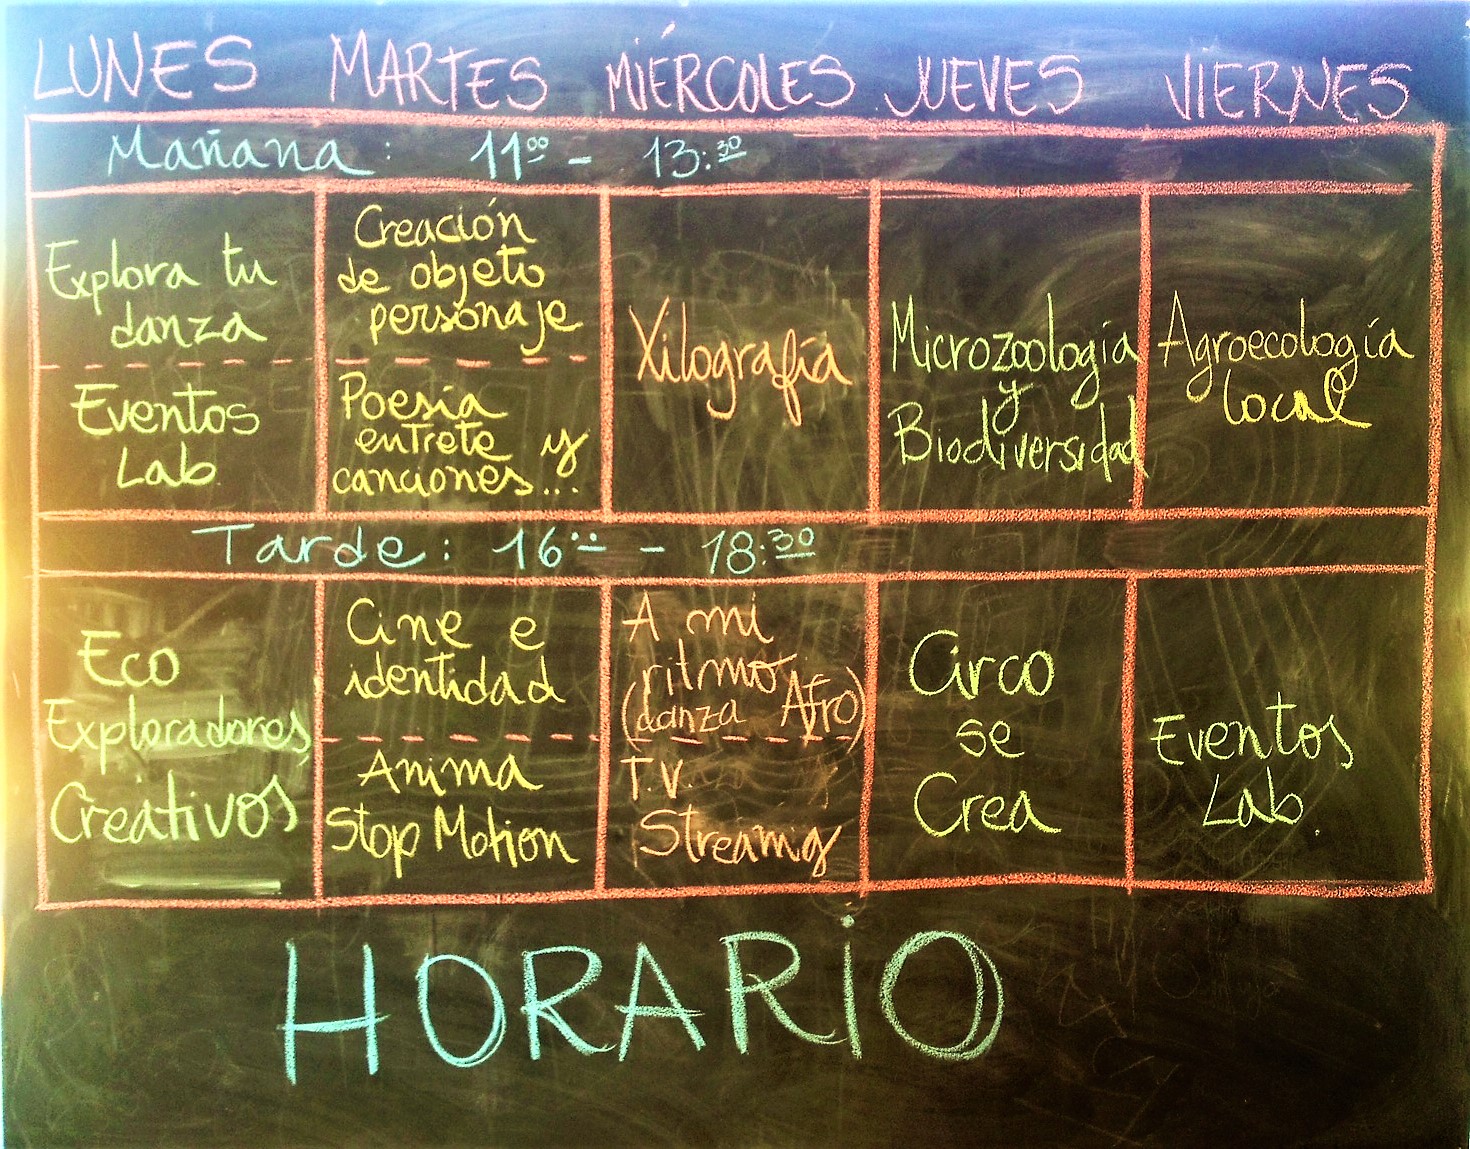 LUNES MARTES MIÉRCOLES JUEVES VIERNES
Mañana: 11⁰⁰ - 13:³⁰
Explora tu
danza
Eventos
Lab.
Creación
de objeto
personaje
Poesía
entrete y
canciones...
Xilografía
Microzoología
y
Biodiversidad
Agroecología
local
Tarde: 16:⁰⁰ - 18:³⁰
Eco
Exploradores
Creativos
Cine e
identidad
Anima
Stop Motion
A mi
ritmo
(danza Afro)
T.V.
Streamig
Circo
se
Crea
Eventos
Lab
HORARIO